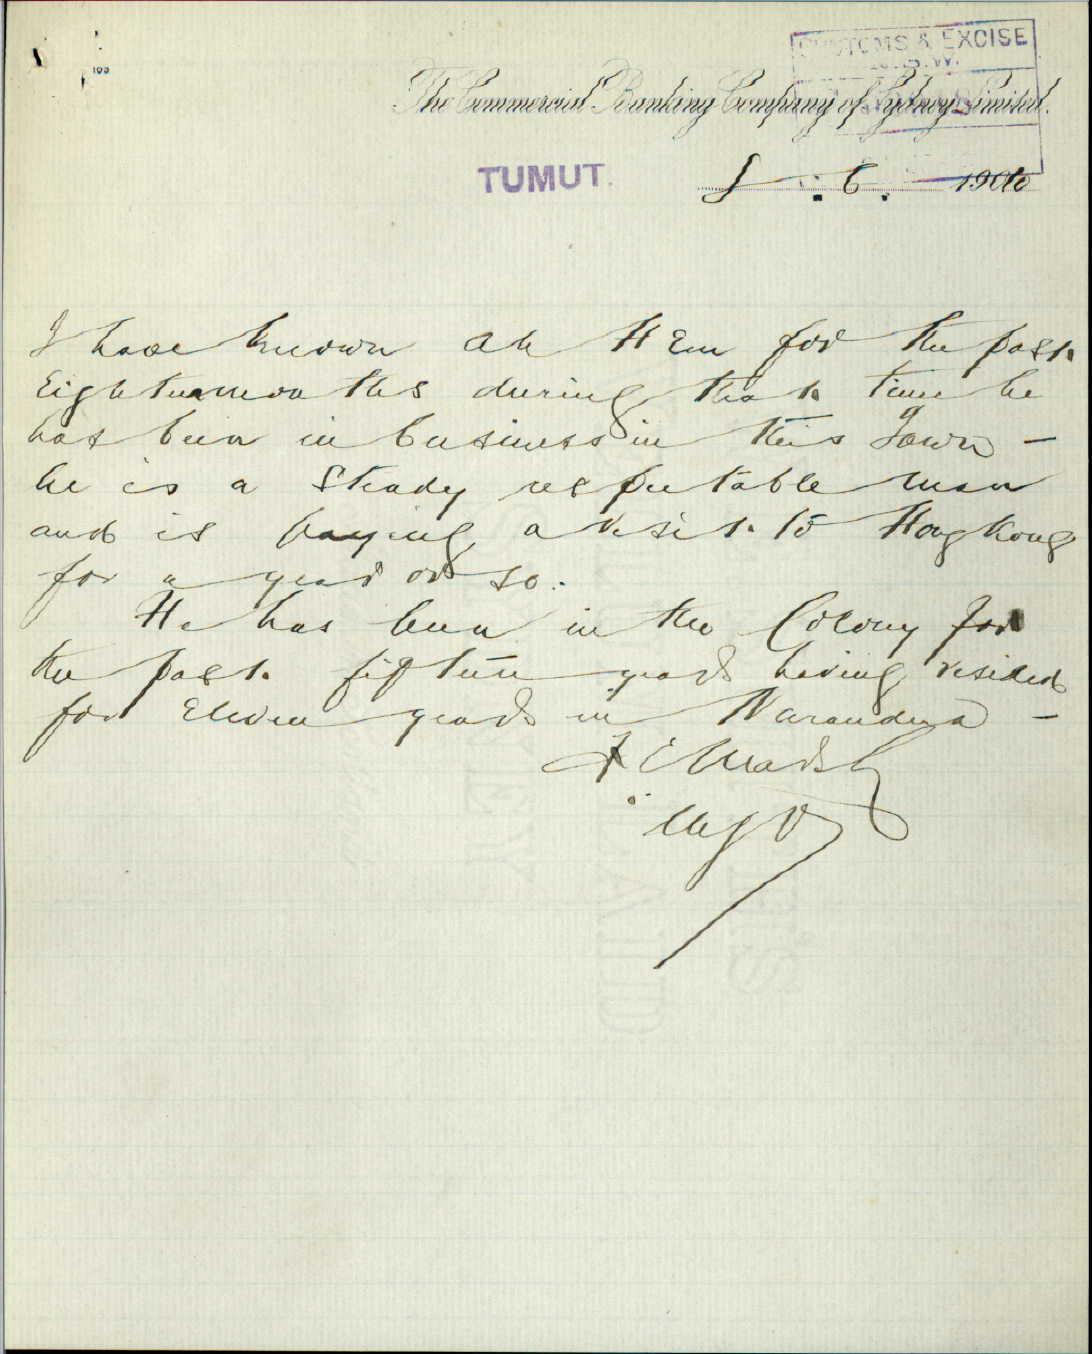 CUSTOMS & EXCISE
N.S.W.
103
The Commercial Banking Company of Sydney Limited.
TUMUT.
6. 1900
I have known Ah Hem for the past
Eighteen months during that time he
has been in business in this Town -
he is a steady respectable man
and is paying a visit to Hong Kong
for a year or so.
He has been in the Colony for
the past fifteen years having resided
for Eleven years in Narandera -
Marsh
Mgr